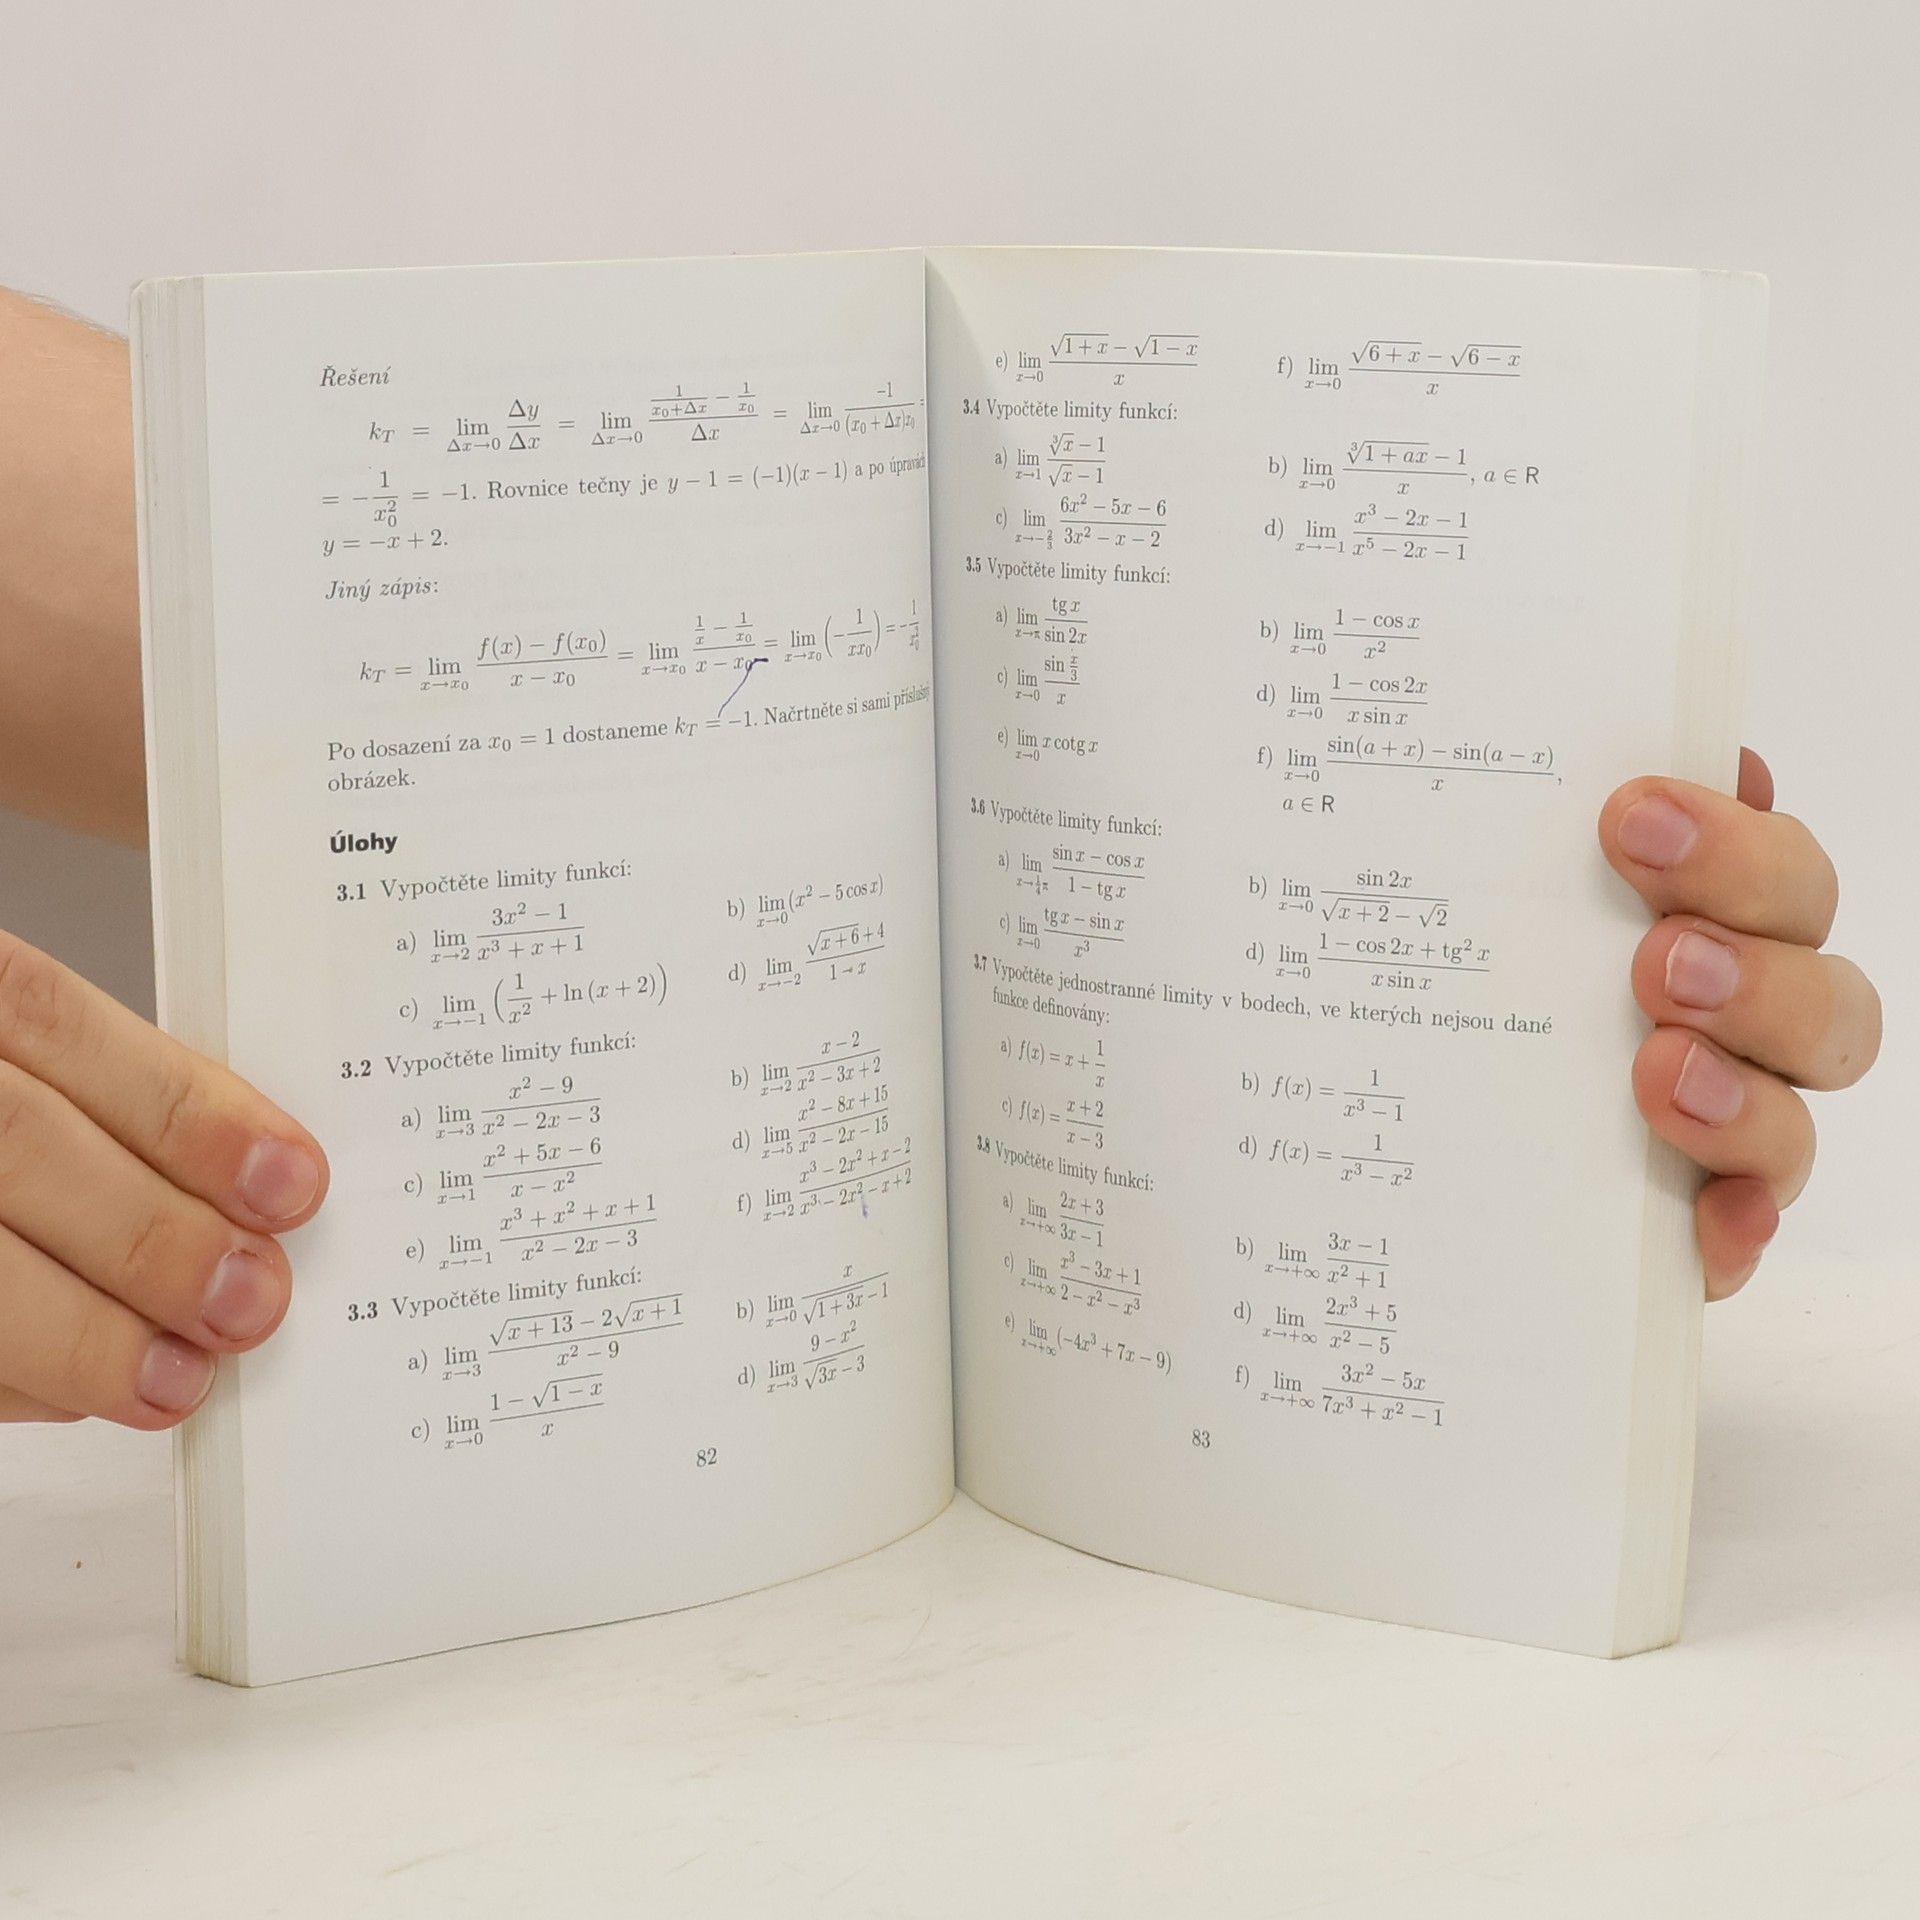 Řešení
k_T = lim_{Δx→0} Δy/Δx = lim_{Δx→0} (1/(x₀+Δx) − 1/x₀)/Δx = lim_{Δx→0} −1/((x₀ + Δx)x₀) =
= − 1/x₀² = −1. Rovnice tečny je y − 1 = (−1)(x − 1) a po úpravách
y = −x + 2.
Jiný zápis:
k_T = lim_{x→x₀} (f(x) − f(x₀))/(x − x₀) = lim_{x→x₀} (1/x − 1/x₀)/(x − x₀) = lim_{x→x₀} (− 1/(xx₀)) = − 1/x₀²
Po dosazení za x₀ = 1 dostaneme k_T = −1. Načrtněte si sami příslušný
obrázek.
Úlohy
3.1 Vypočtěte limity funkcí:
a) lim_{x→2} (3x² − 1)/(x³ + x + 1) b) lim_{x→0} (x² − 5 cos x)
c) lim_{x→−1} (1/x² + ln (x + 2)) d) lim_{x→−2} (√(x + 6) + 4)/(1 − x)
3.2 Vypočtěte limity funkcí:
a) lim_{x→3} (x² − 9)/(x² − 2x − 3) b) lim_{x→2} (x − 2)/(x² − 3x + 2)
c) lim_{x→1} (x² + 5x − 6)/(x − x²) d) lim_{x→5} (x² − 8x + 15)/(x² − 2x − 15)
e) lim_{x→−1} (x³ + x² + x + 1)/(x² − 2x − 3) f) lim_{x→2} (x³ − 2x² + x − 2)/(x³ − 2x² − x + 2)
3.3 Vypočtěte limity funkcí:
a) lim_{x→3} (√(x + 13) − 2√(x + 1))/(x² − 9) b) lim_{x→0} x/(√(1 + 3x) − 1)
c) lim_{x→0} (1 − √(1 − x))/x d) lim_{x→3} (9 − x²)/(√(3x) − 3)
82
e) lim_{x→0} (√(1 + x) − √(1 − x))/x f) lim_{x→0} (√(6 + x) − √(6 − x))/x
3.4 Vypočtěte limity funkcí:
a) lim_{x→1} (∛x − 1)/(√x − 1) b) lim_{x→0} (∛(1 + ax) − 1)/x, a ∈ R
c) lim_{x→−2/3} (6x² − 5x − 6)/(3x² − x − 2) d) lim_{x→−1} (x³ − 2x − 1)/(x⁵ − 2x − 1)
3.5 Vypočtěte limity funkcí:
a) lim_{x→π} tg x/sin 2x b) lim_{x→0} (1 − cos x)/x²
c) lim_{x→0} (sin x/3)/x d) lim_{x→0} (1 − cos 2x)/(x sin x)
e) lim_{x→0} x cotg x f) lim_{x→0} (sin(a + x) − sin(a − x))/x,
a ∈ R
3.6 Vypočtěte limity funkcí:
a) lim_{x→¼π} (sin x − cos x)/(1 − tg x) b) lim_{x→0} sin 2x/(√(x + 2) − √2)
c) lim_{x→0} (tg x − sin x)/x³ d) lim_{x→0} (1 − cos 2x + tg² x)/(x sin x)
3.7 Vypočtěte jednostranné limity v bodech, ve kterých nejsou dané
funkce definovány:
a) f(x) = x + 1/x b) f(x) = 1/(x³ − 1)
c) f(x) = (x + 2)/(x − 3) d) f(x) = 1/(x³ − x²)
3.8 Vypočtěte limity funkcí:
a) lim_{x→+∞} (2x + 3)/(3x − 1) b) lim_{x→+∞} (3x − 1)/(x² + 1)
c) lim_{x→+∞} (x³ − 3x + 1)/(2 − x² − x³) d) lim_{x→+∞} (2x³ + 5)/(x² − 5)
e) lim_{x→+∞} (−4x³ + 7x − 9) f) lim_{x→+∞} (3x² − 5x)/(7x³ + x² − 1)
83